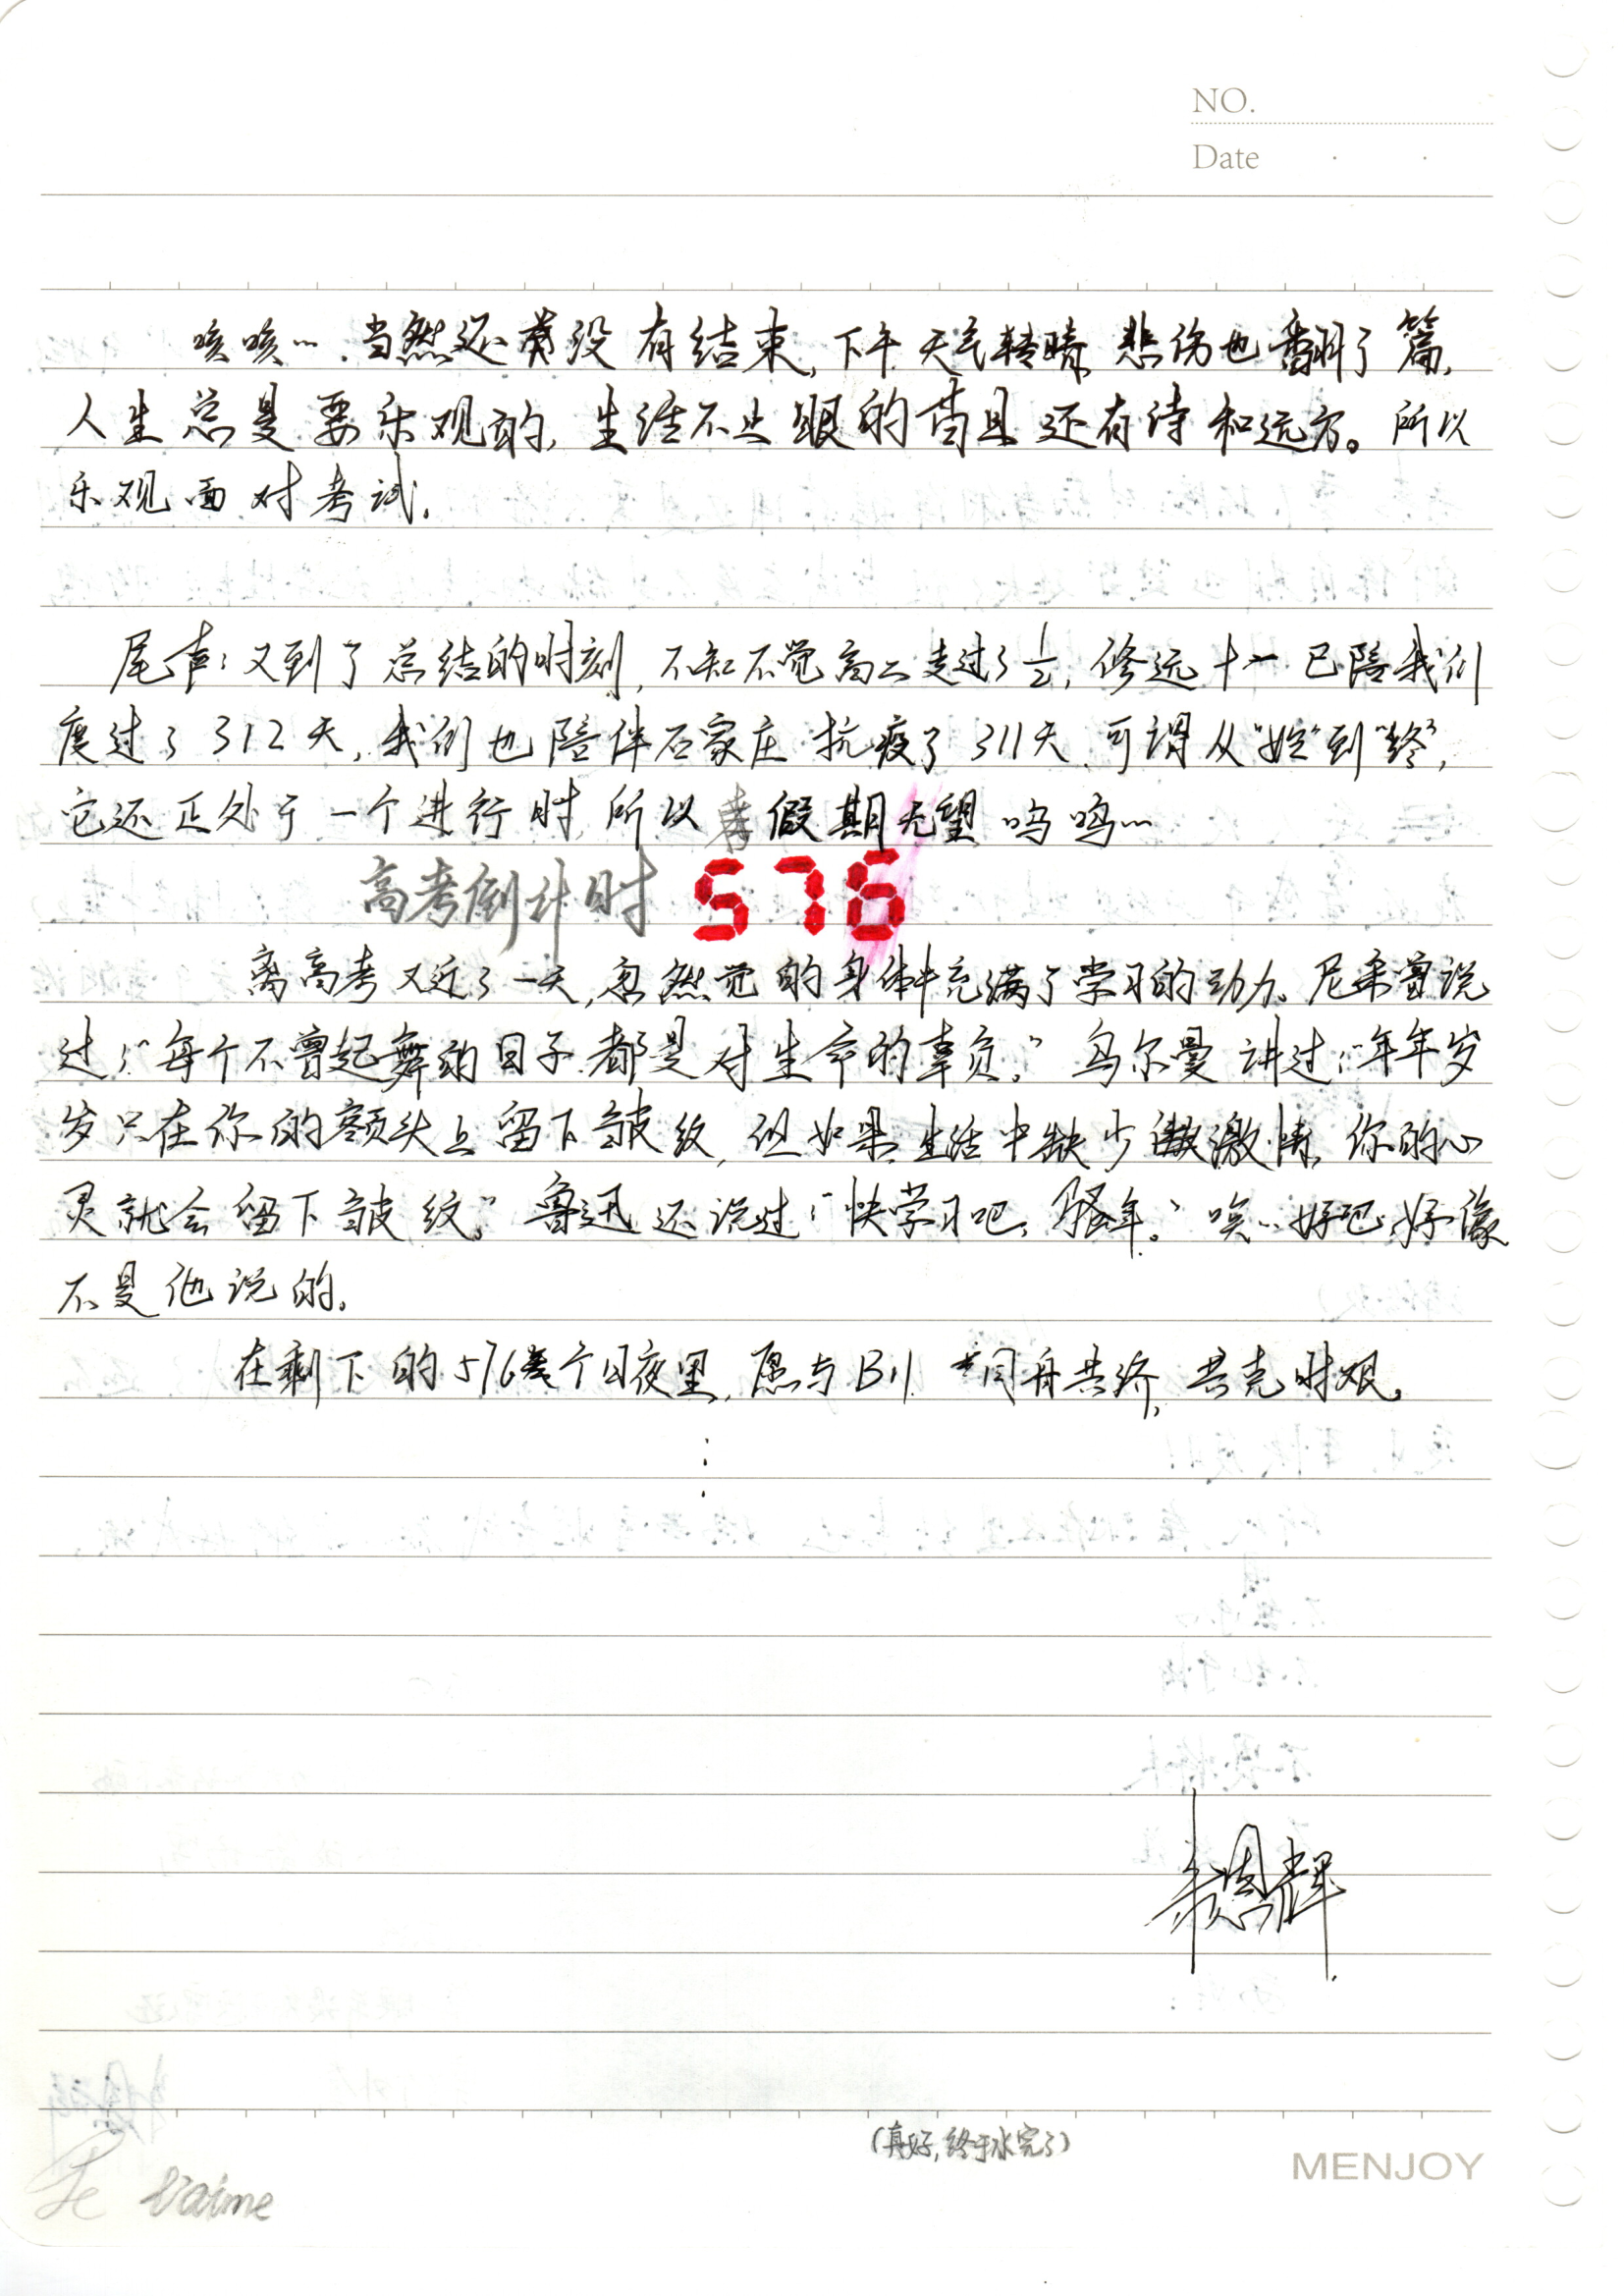 NO.
Date
咳咳… 当然还没有结束,下午天气转晴,悲伤也翻了篇,
人生总是要乐观的,生活不止眼的苟且还有诗和远方。所以
乐观面对考试.
尾声:又到了总结的时刻,不知不觉高二走过了½,修远十一已陪我们
度过了312天,我们也陪伴石家庄抗疫了311天,可谓从"始"到"终",
它还正处于一个进行时,所以假期无望呜呜…
高考倒计时 576
离高考又近了一天,忽然觉的身体中充满了学习的动力。尼采曾说
过:"每个不曾起舞的日子都是对生命的辜负。"乌尔曼讲过:"年年岁
岁只在你的额头上留下皱纹,但如果生活中缺少激情,你的心
灵就会留下皱纹。"鲁迅还说过:"快学习吧,骚年。"唉…好吧,好像
不是他说的。
在剩下的576个日夜里,愿与B11同舟共济,共克时艰。
恩辉
(真好,终于水完了)
MENJOY
Je t'aime